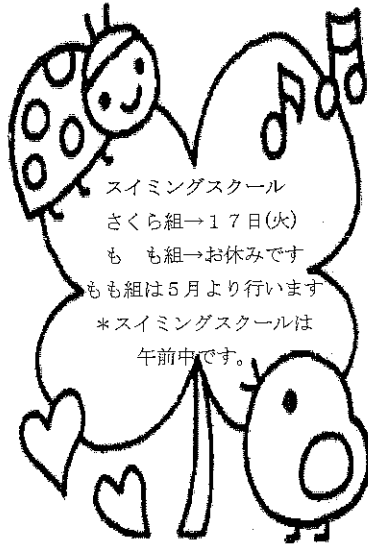 スイミングスクール
さくら組→１７日(火)
も　も組→お休みです
もも組は５月より行います
＊スイミングスクールは
午前中です。